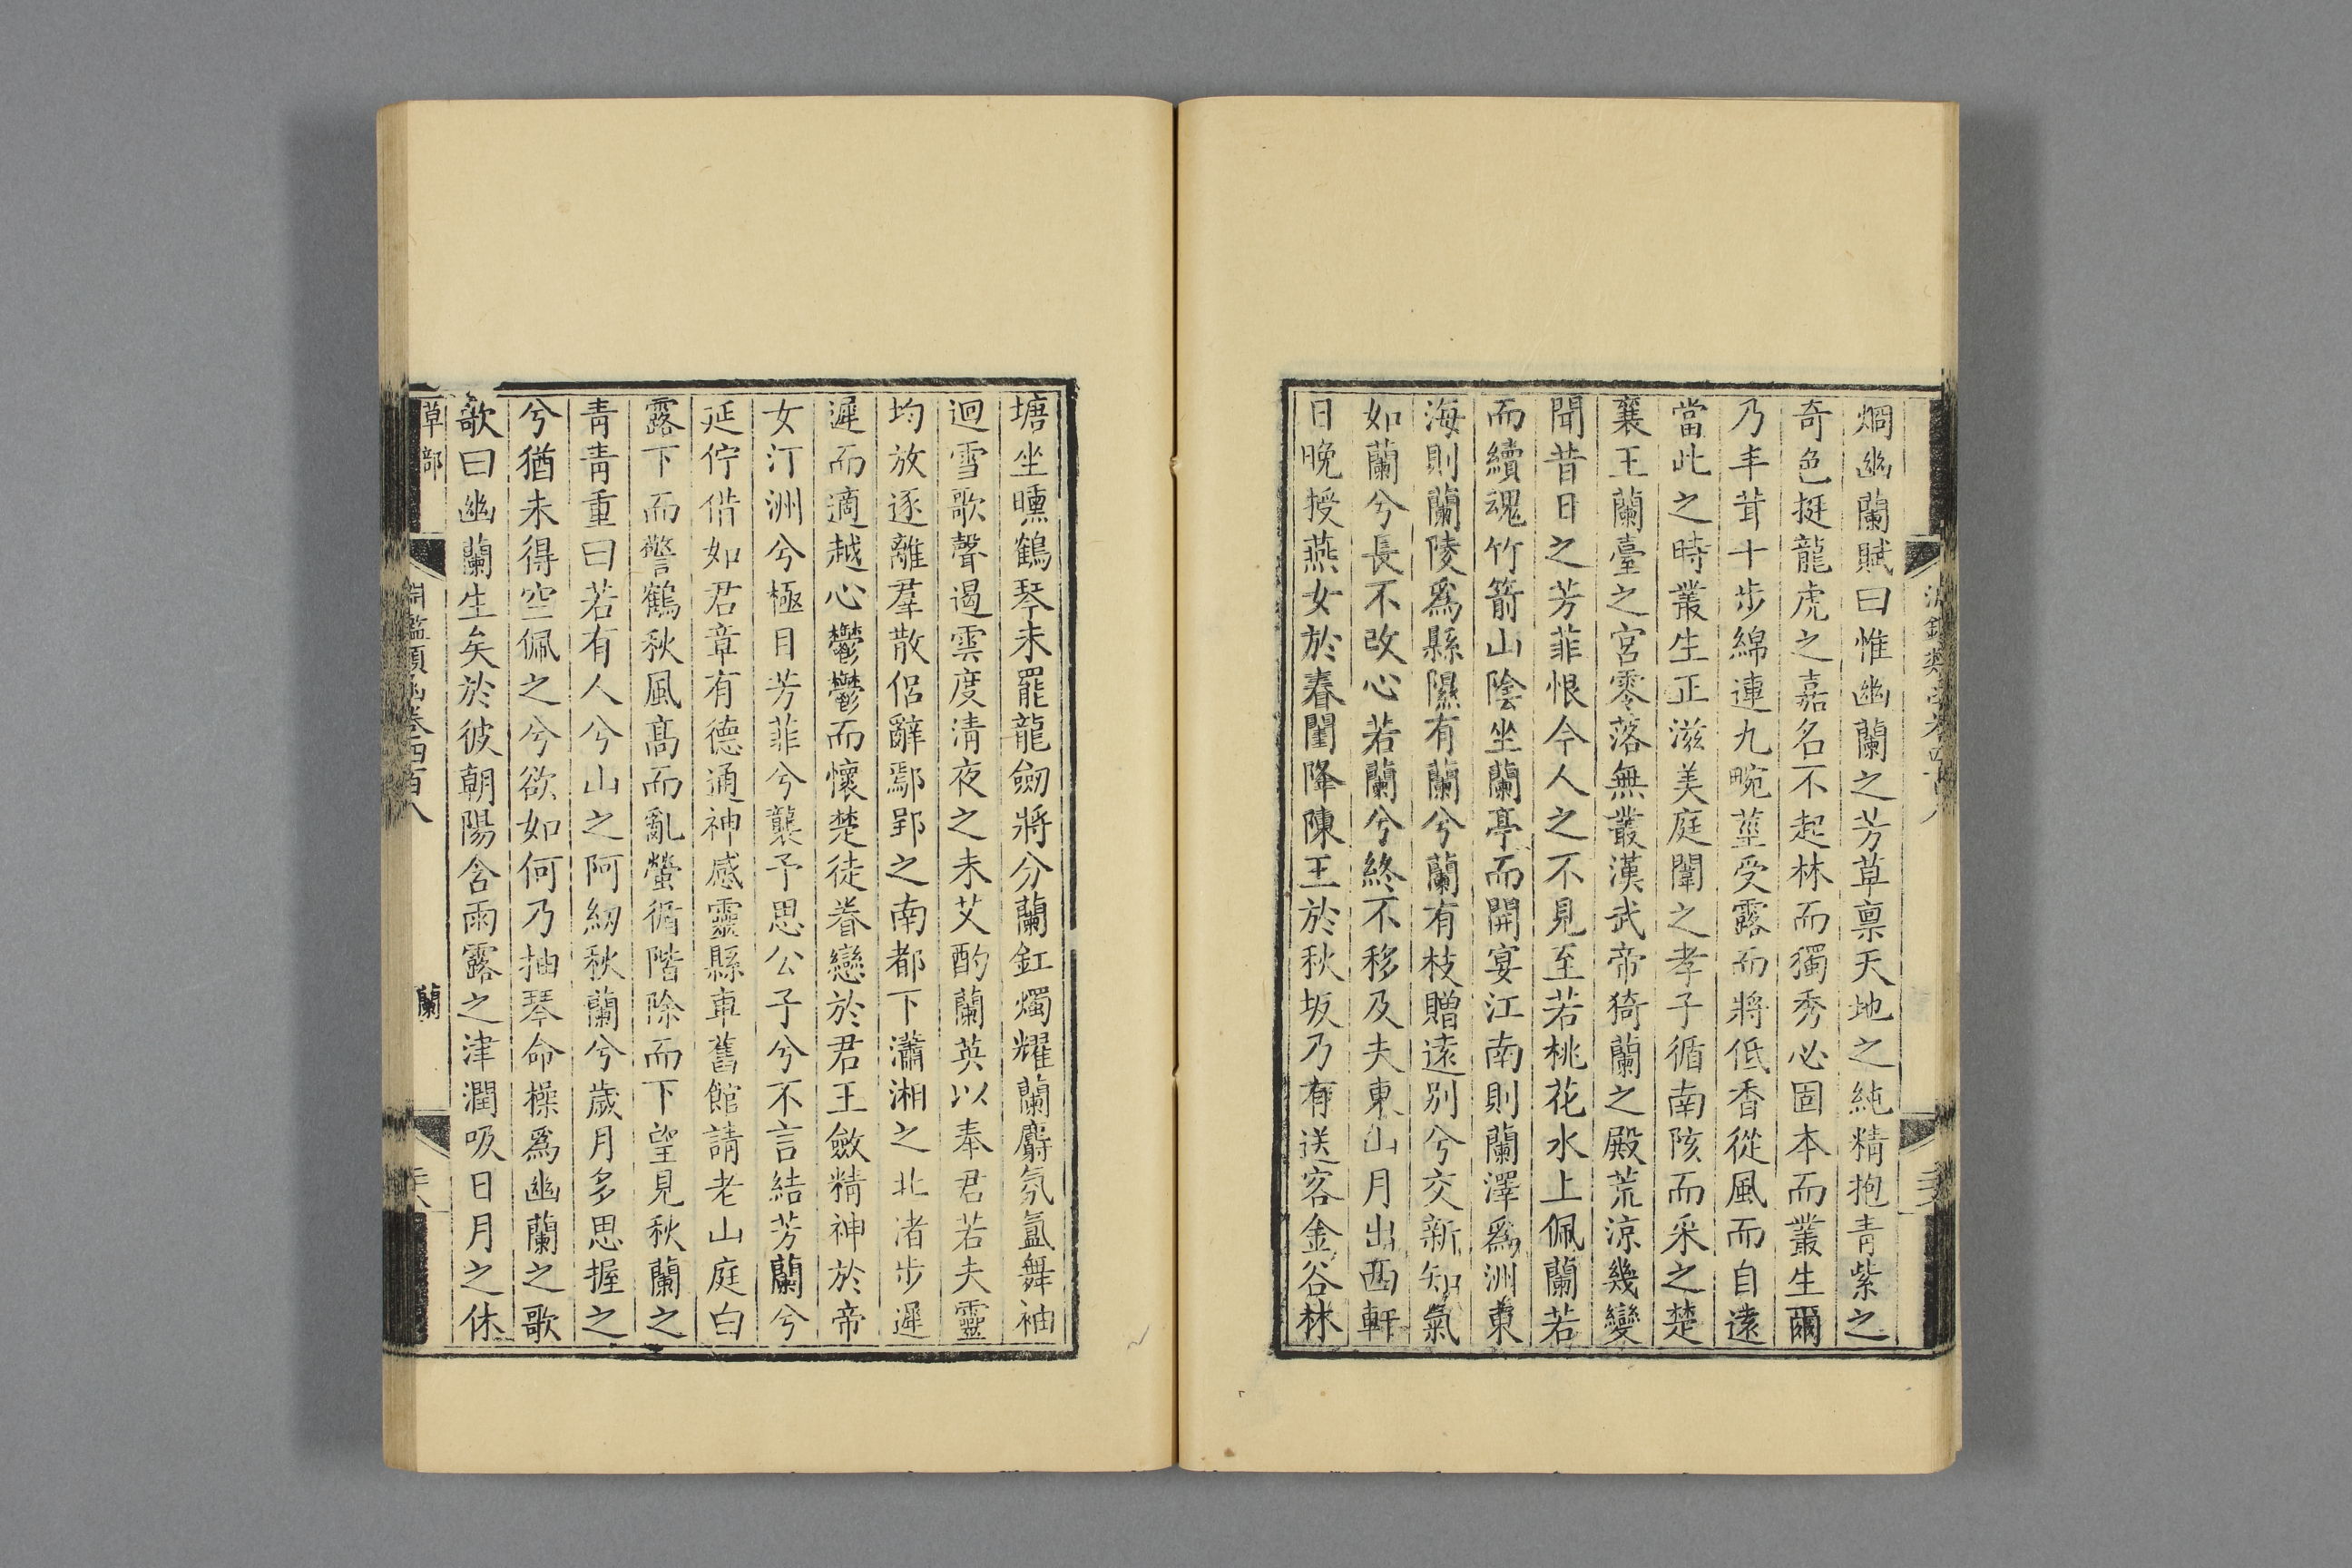 烱幽蘭賦曰惟幽蘭之芳草禀天地之純精抱青紫之
奇色挺龍虎之嘉名不起林而獨秀必固本而叢生爾
乃丰茸十步綿連九畹莖受露而將低香從風而自遠
當此之時叢生正滋美庭闈之孝子循南陔而采之楚
襄王蘭臺之宮零落無叢漢武帝猗蘭之殿荒涼幾變
聞昔日之芳菲恨今人之不見至若桃花水上佩蘭若
而續魂竹箭山陰坐蘭亭而開宴江南則蘭澤爲洲東
海則蘭陵爲縣隰有蘭兮蘭有枝贈遠别兮交新知氣
如蘭兮長不改心若蘭兮終不移及夫東山月出西軒
日晚授燕女於春閨降陳王於秋坂乃有送客金谷林
塘坐曛鶴琴未罷龍劒將分蘭釭燭耀蘭麝氛氳舞袖
迴雪歌聲遏雲度清夜之未艾酌蘭英以奉君若夫靈
均放逐離羣散侶辭鄢郢之南都下瀟湘之北渚步遲
遲而適越心鬱鬱而懷楚徒眷戀於君王斂精神於帝
女汀洲兮極目芳菲兮襲予思公子兮不言結芳蘭兮
延佇借如君章有德通神感靈縣車舊館請老山庭白
露下而警鶴秋風髙而亂螢循階除而下望見秋蘭之
青青重曰若有人兮山之阿紉秋蘭兮歲月多思握之
兮猶未得空佩之兮欲如何乃抽琴命操爲幽蘭之歌
歌曰幽蘭生矣於彼朝陽含雨露之津潤吸日月之休
草部
淵鑑類函卷四百八
蘭